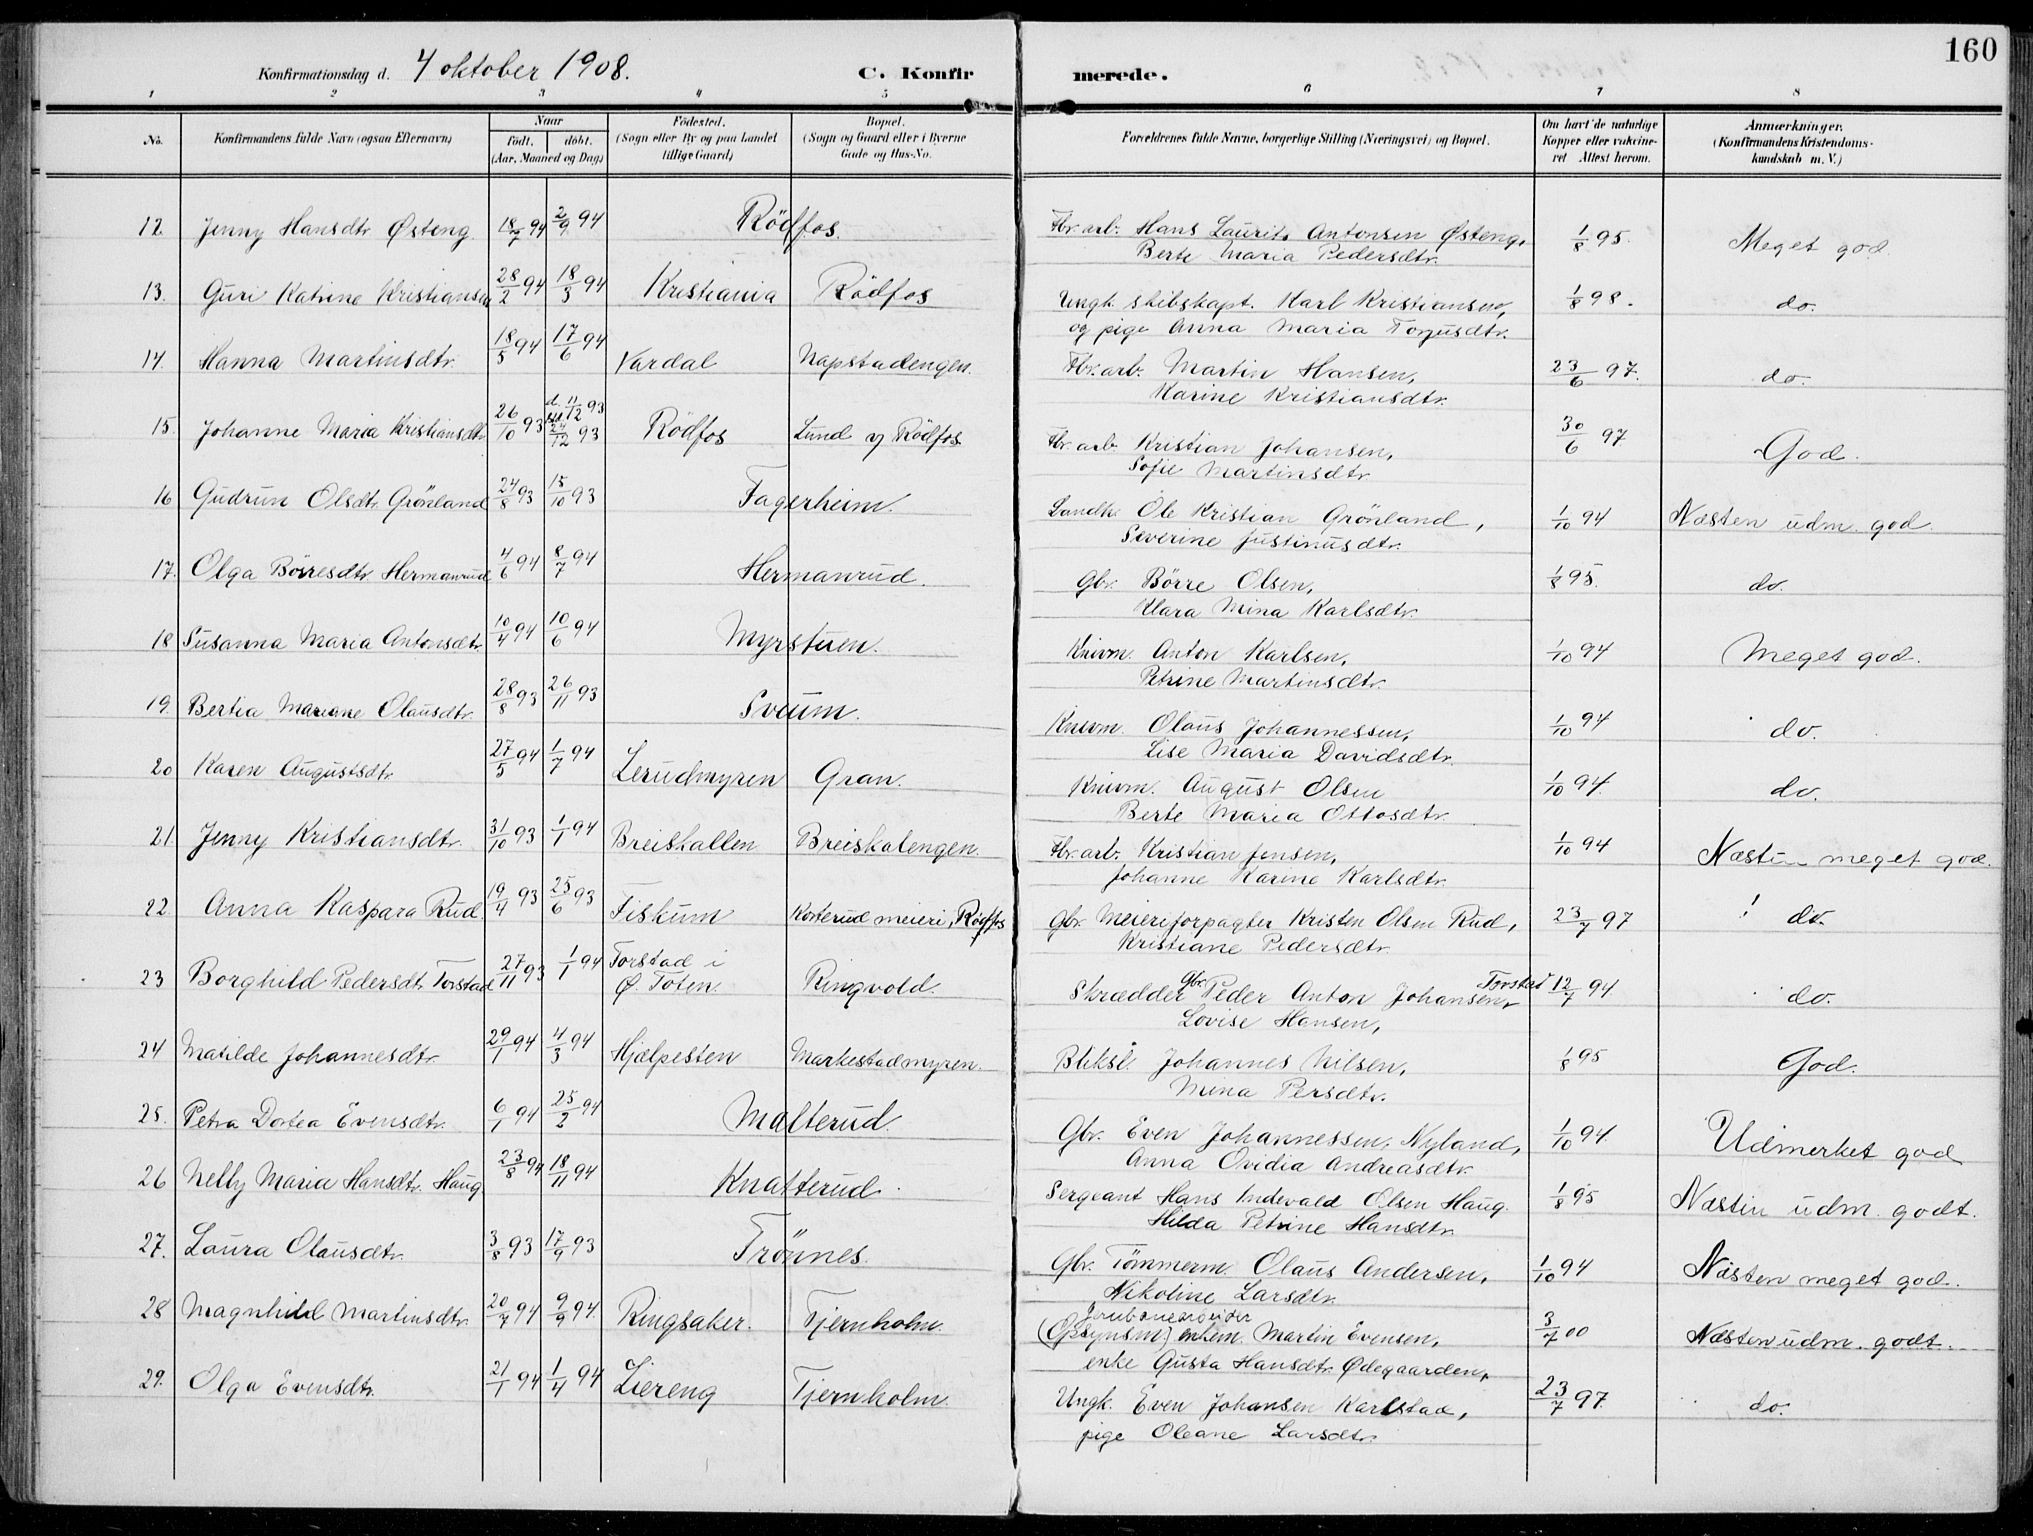 160
Konfirmationsdag d. 4 oktober 1908. C. Konfirmerede.
1 2 3 4 5 6 7 8
No. Konfirmandens fulde Navn (ogsaa Efternavn) Naar født, døbt. (Aar, Maaned og Dag) Fødested. (Sogn eller By og paa Landet tillige Gaard) Bopæl. (Sogn og Gaard eller i Byerne Gade og Hus-No. Forældrenes fulde Navne, borgerlige Stilling (Næringsvei) og Bopæl. Om havt de naturlige Kopper eller vakcineret Attest herom. Anmærkninger. (Konfirmandens Kristendomskundskab m. V.)
12. Jenny Hansdtr Østeng 18/7 94 2/9 94 Rödfos. Fbr. arb. Hans Laurits Antonsen Østeng, 1/8 95. Meget god
Berte Maria Pedersdtr.
13. Guri Katrine Kristiansen 28/2 94 18/3 94 Kristiania Rödfos Ungk. skibskapt. Karl Kristiansen, 1/8 98. do.
og pige Anna Maria Torjusdtr.
14. Hanna Martinsdtr. 18/5 94 17/6 94 Vardal Napstadengen. Fbr. arb. Martin Hansen, 23/6 97. do.
Karine Kristiansdtr.
15. Johanne Maria Kristiansdtr 26/10 93 d. 11/12 93 24/12 93 Rödfos Lund y Rödfos Fbr. arb. Kristian Johansen, 30/6 97 God.
Sofie Martinsdtr
16 Gudrun Olsdtr. Grönland 24/8 93 15/10 93 Fagerheim. Landh. Ole Kristian Grönland, 1/10 94 Næsten udm. god.
Severine Justinusdtr.
17. Olga Börresdtr Hermanrud 4/6 94 8/7 94 Hermanrud. Gbr. Börre Olsen, 1/8 95. do.
Klara Mina Karlsdtr.
18 Susanna Maria Antonsdtr. 10/4 94 10/6 94 Myrstuen. Knivm. Anton Karlsen, 1/10 94 Meget god.
Petrine Martinsdtr.
19. Bertea Mariane Olausdtr. 28/8 93 26/11 93 Sveum. Knivm. Olaus Johannessen, 1/10 94 do.
Lise Maria Davidsdtr.
20 Karen Augustsdtr. 27/5 94 1/7 94 Lerudmyren Gran. Knivm. August Olsen 1/10 94. do.
Berte Maria Ottosdtr.
21. Jenny Kristiansdtr. 31/10 93 1/1 94 Breiskallen Breiskalengen. Fbr. arb. Kristian Jensen, 1/10 94 Næsten meget god.
Johanne Karine Karlsdtr.
22. Anna Kaspara Rud. 19/4 93 25/6 93 Fiskum Korterud meieri, Rödfos Gbr. Meieriforpagter Kristen Olsen Rud, 23/7 97 do.
Kristiane Pedersdtr.
23 Borghild Pedersdtr. Torstad 27/11 93 1/1 94 Torstad i Ø. Toten. Ringvold. Skrædder Gbr. Peder Anton Johansen Torstad, 12/7 94. do.
Lovise Hansen,
24 Matilde Johannesdtr. 29/1 94 4/3 94 Hjælpesten Markestadmyren. Bliksl. Johannes Nilsen, 1/8 95 God.
Mina Persdtr.
25. Petra Dortea Evensdtr. 6/1 94 25/2 94 Malterud. Gbr. Even Johannessen, Nyland, 1/10 94. Udmerket god
Anna Ovidia Andreasdtr.
26 Nelly Maria Hansdtr. Haug. 23/8 94 18/11 94 Knatterud. Sergeant Hans Indevald Olsen Haug. 1/8 95 Næsten udm. godt.
Hilda Petrine Hansdtr.
27. Laura Olausdtr. 3/8 93 17/9 93 Trönnes. Gbr. Tömmerm. Olaus Andersen, 1/10 94 Næsten meget god.
Nikoline Larsdtr.
28 Magnhild Martinsdtr. 20/7 94 9/9 94. Ringsaker. Tjernholm. Jernbanearbeider (Opsynsm.) enkem. Martin Evensen, 3/7 00 Næsten udm. godt.
enke Gusta Hansdtr. Ødegaarden,
29. Olga Evensdtr. 21/1 94 1/4 94 Liereng Tjernholm. Ungk. Even Johansen Karlstad, 23/7 97 do.
pige Oleane Larsdtr.